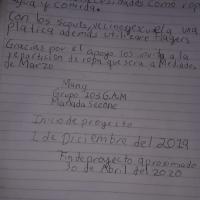 como ropa
agua y comida.
Con los scouts, vecinos escuela una
platica además utilizare flayers
Gracias por el apoyo los invito a la
repartición de ropa que sera a Mediados
de Marzo
Grupo 203 G.A.M
Manada Seonee
Inicio de proyecto
1 de Diciembre del 2019
Fin de proyecto aproximado
30 de Abril del 2020